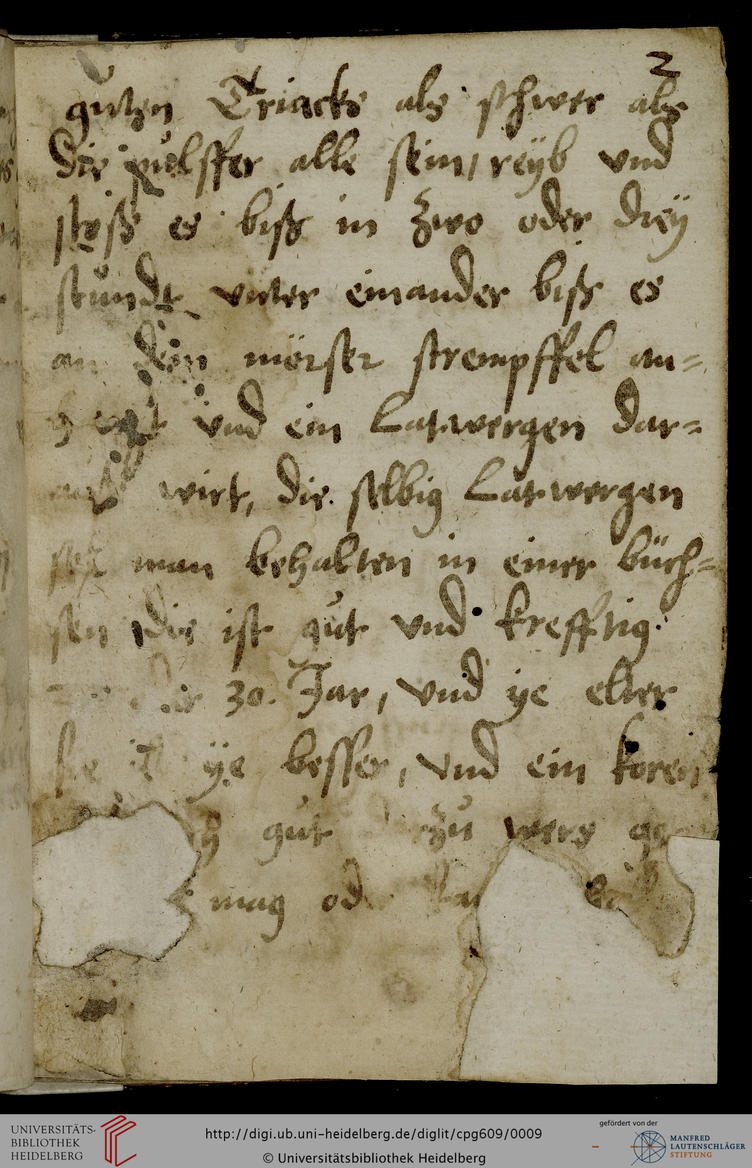 2
guten Triacks als schwer als
die pulffer alle sein, reyb vnd
stoß es biß in zwo oder drey
stundt vnter einander biß es
an dem mörser strempffel an=
vnd ein Latwergen dar=
wirt, die selbig Latwergen
sol man behalten in einer büch=
sen die ist gut vnd krefftig
30. Jar, vnd ye elter
ye besser, vnd ein koren
gut zu
mag
UNIVERSITÄTS-
BIBLIOTHEK
HEIDELBERG
http://digi.ub.uni-heidelberg.de/diglit/cpg609/0009
© Universitätsbibliothek Heidelberg
gefördert von der
MANFRED
LAUTENSCHLÄGER
STIFTUNG